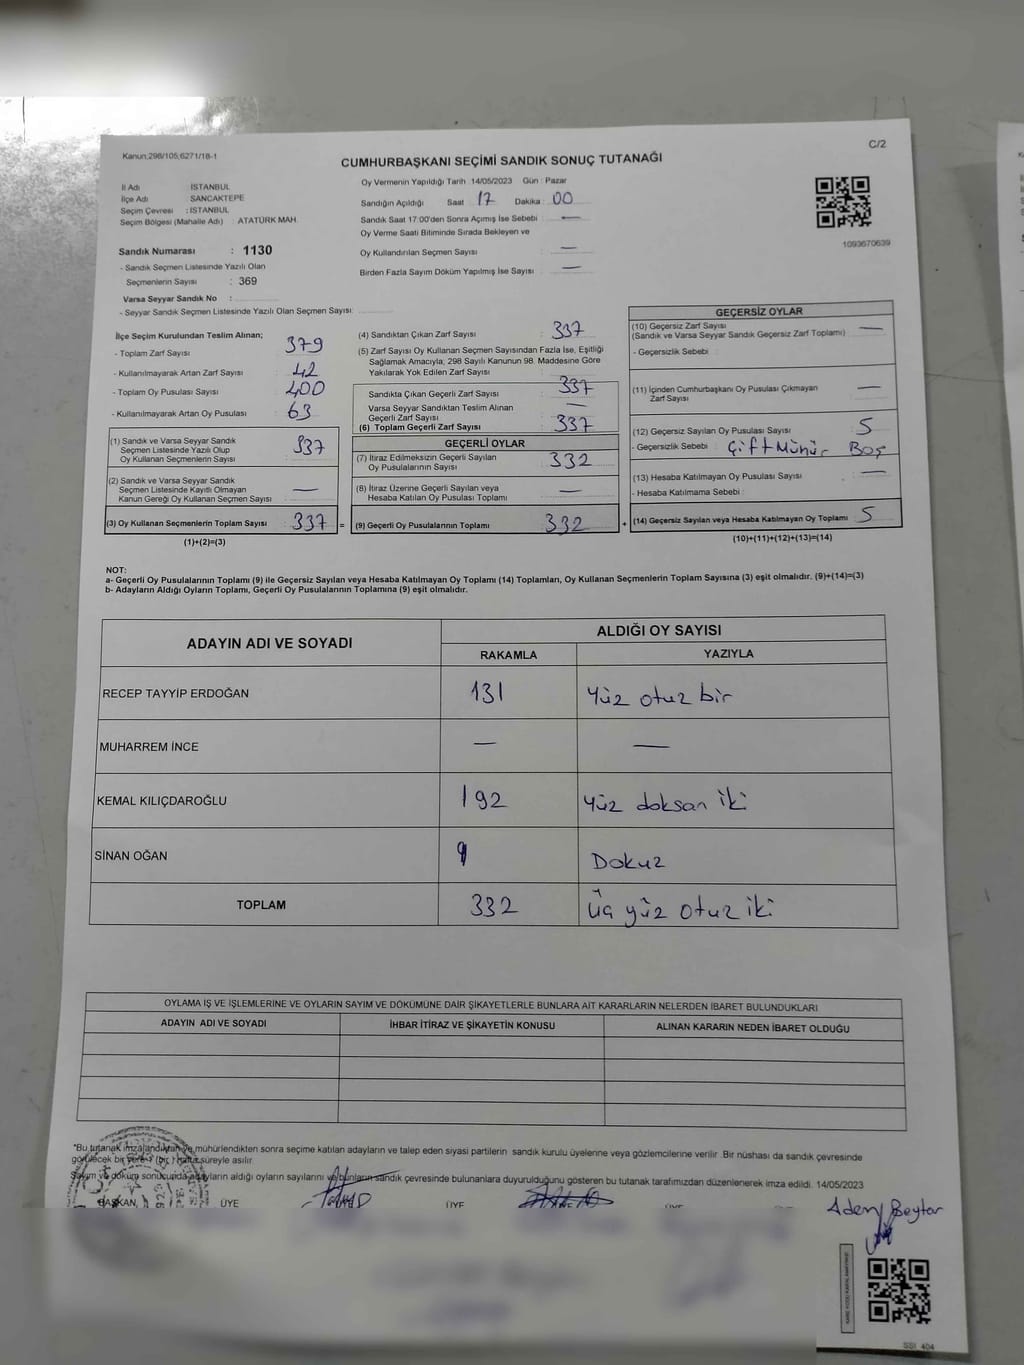 Kanun;298/105;6271/18-1
C/2
CUMHURBAŞKANI SEÇİMİ SANDIK SONUÇ TUTANAĞI
İl Adı İSTANBUL
İlçe Adı SANCAKTEPE
Seçim Çevresi : İSTANBUL
Seçim Bölgesi (Mahalle Adı) : ATATÜRK MAH.
Oy Vermenin Yapıldığı Tarih 14/05/2023 Gün : Pazar
Sandığın Açıldığı Saat 17 Dakika : 00
Sandık Saat 17:00'den Sonra Açımış İse Sebebi : —
Oy Verme Saati Bitiminde Sırada Bekleyen ve
Oy Kullandırılan Seçmen Sayısı : —
Birden Fazla Sayım Döküm Yapılmış İse Sayısı : —
1093670639
Sandık Numarası : 1130
- Sandık Seçmen Listesinde Yazılı Olan
Seçmenlerin Sayısı : 369
Varsa Seyyar Sandık No :
- Seyyar Sandık Seçmen Listesinde Yazılı Olan Seçmen Sayısı:
İlçe Seçim Kurulundan Teslim Alınan;
- Toplam Zarf Sayısı 379
- Kullanılmayarak Artan Zarf Sayısı : 42
- Toplam Oy Pusulası Sayısı : 400
- Kullanılmayarak Artan Oy Pusulası : 63
(1) Sandık ve Varsa Seyyar Sandık
Seçmen Listesinde Yazılı Olup
Oy Kullanan Seçmenlerin Sayısı : 337
(2) Sandık ve Varsa Seyyar Sandık
Seçmen Listesinde Kayıtlı Olmayan
Kanun Gereği Oy Kullanan Seçmen Sayısı : —
(3) Oy Kullanan Seçmenlerin Toplam Sayısı : 337 =
(1)+(2)=(3)
(4) Sandıktan Çıkan Zarf Sayısı : 337
(5) Zarf Sayısı Oy Kullanan Seçmen Sayısından Fazla İse, Eşitliği
Sağlamak Amacıyla; 298 Sayılı Kanunun 98. Maddesine Göre
Yakılarak Yok Edilen Zarf Sayısı :
Sandıkta Çıkan Geçerli Zarf Sayısı : 337
Varsa Seyyar Sandıktan Teslim Alınan
Geçerli Zarf Sayısı : —
(6) Toplam Geçerli Zarf Sayısı : 337
GEÇERLİ OYLAR
(7) İtiraz Edilmeksizin Geçerli Sayılan
Oy Pusulalarının Sayısı : 332
(8) İtiraz Üzerine Geçerli Sayılan veya
Hesaba Katılan Oy Pusulası Toplamı : —
(9) Geçerli Oy Pusulalarının Toplamı : 332 +
GEÇERSİZ OYLAR
(10) Geçersiz Zarf Sayısı
(Sandık ve Varsa Seyyar Sandık Geçersiz Zarf Toplamı) : —
- Geçersizlik Sebebi :
(11) İçinden Cumhurbaşkanı Oy Pusulası Çıkmayan
Zarf Sayısı : —
(12) Geçersiz Sayılan Oy Pusulası Sayısı : 5
- Geçersizlik Sebebi : Çift Mühür Boş
(13) Hesaba Katılmayan Oy Pusulası Sayısı : —
- Hesaba Katılmama Sebebi :
(14) Geçersiz Sayılan veya Hesaba Katılmayan Oy Toplamı : 5
(10)+(11)+(12)+(13)=(14)
NOT:
a- Geçerli Oy Pusulalarının Toplamı (9) ile Geçersiz Sayılan veya Hesaba Katılmayan Oy Toplamı (14) Toplamları, Oy Kullanan Seçmenlerin Toplam Sayısına (3) eşit olmalıdır. (9)+(14)=(3)
b- Adayların Aldığı Oyların Toplamı, Geçerli Oy Pusulalarının Toplamına (9) eşit olmalıdır.
ADAYIN ADI VE SOYADI
ALDIĞI OY SAYISI
RAKAMLA YAZIYLA
RECEP TAYYİP ERDOĞAN 131 Yüz otuz bir
MUHARREM İNCE — —
KEMAL KILIÇDAROĞLU 192 Yüz doksan iki
SİNAN OĞAN 9 Dokuz
TOPLAM 332 Üç yüz otuz iki
OYLAMA İŞ VE İŞLEMLERİNE VE OYLARIN SAYIM VE DÖKÜMÜNE DAİR ŞİKAYETLERLE BUNLARA AİT KARARLARIN NELERDEN İBARET BULUNDUKLARI
ADAYIN ADI VE SOYADI İHBAR İTİRAZ VE ŞİKAYETİN KONUSU ALINAN KARARIN NEDEN İBARET OLDUĞU
"Bu tutanak imzalandıktan ve mühürlendikten sonra seçime katılan adayların ve talep eden siyasi partilerin sandık kurulu üyelenne veya gözlemcilerine verilir .Bir nüshası da sandık çevresinde
görülecek bir yere 1 (bir) hafta süreyle asılır.
Sayım ve döküm sonucunda adayların aldığı oyların sayılarını ve bunların sandık çevresinde bulunanlara duyurulduğunu gösteren bu tutanak tarafımızdan düzenlenerek imza edildi. 14/05/2023
BAŞKAN, ÜYE ÜYE ÜYE
Adem Beytar
SSI 404